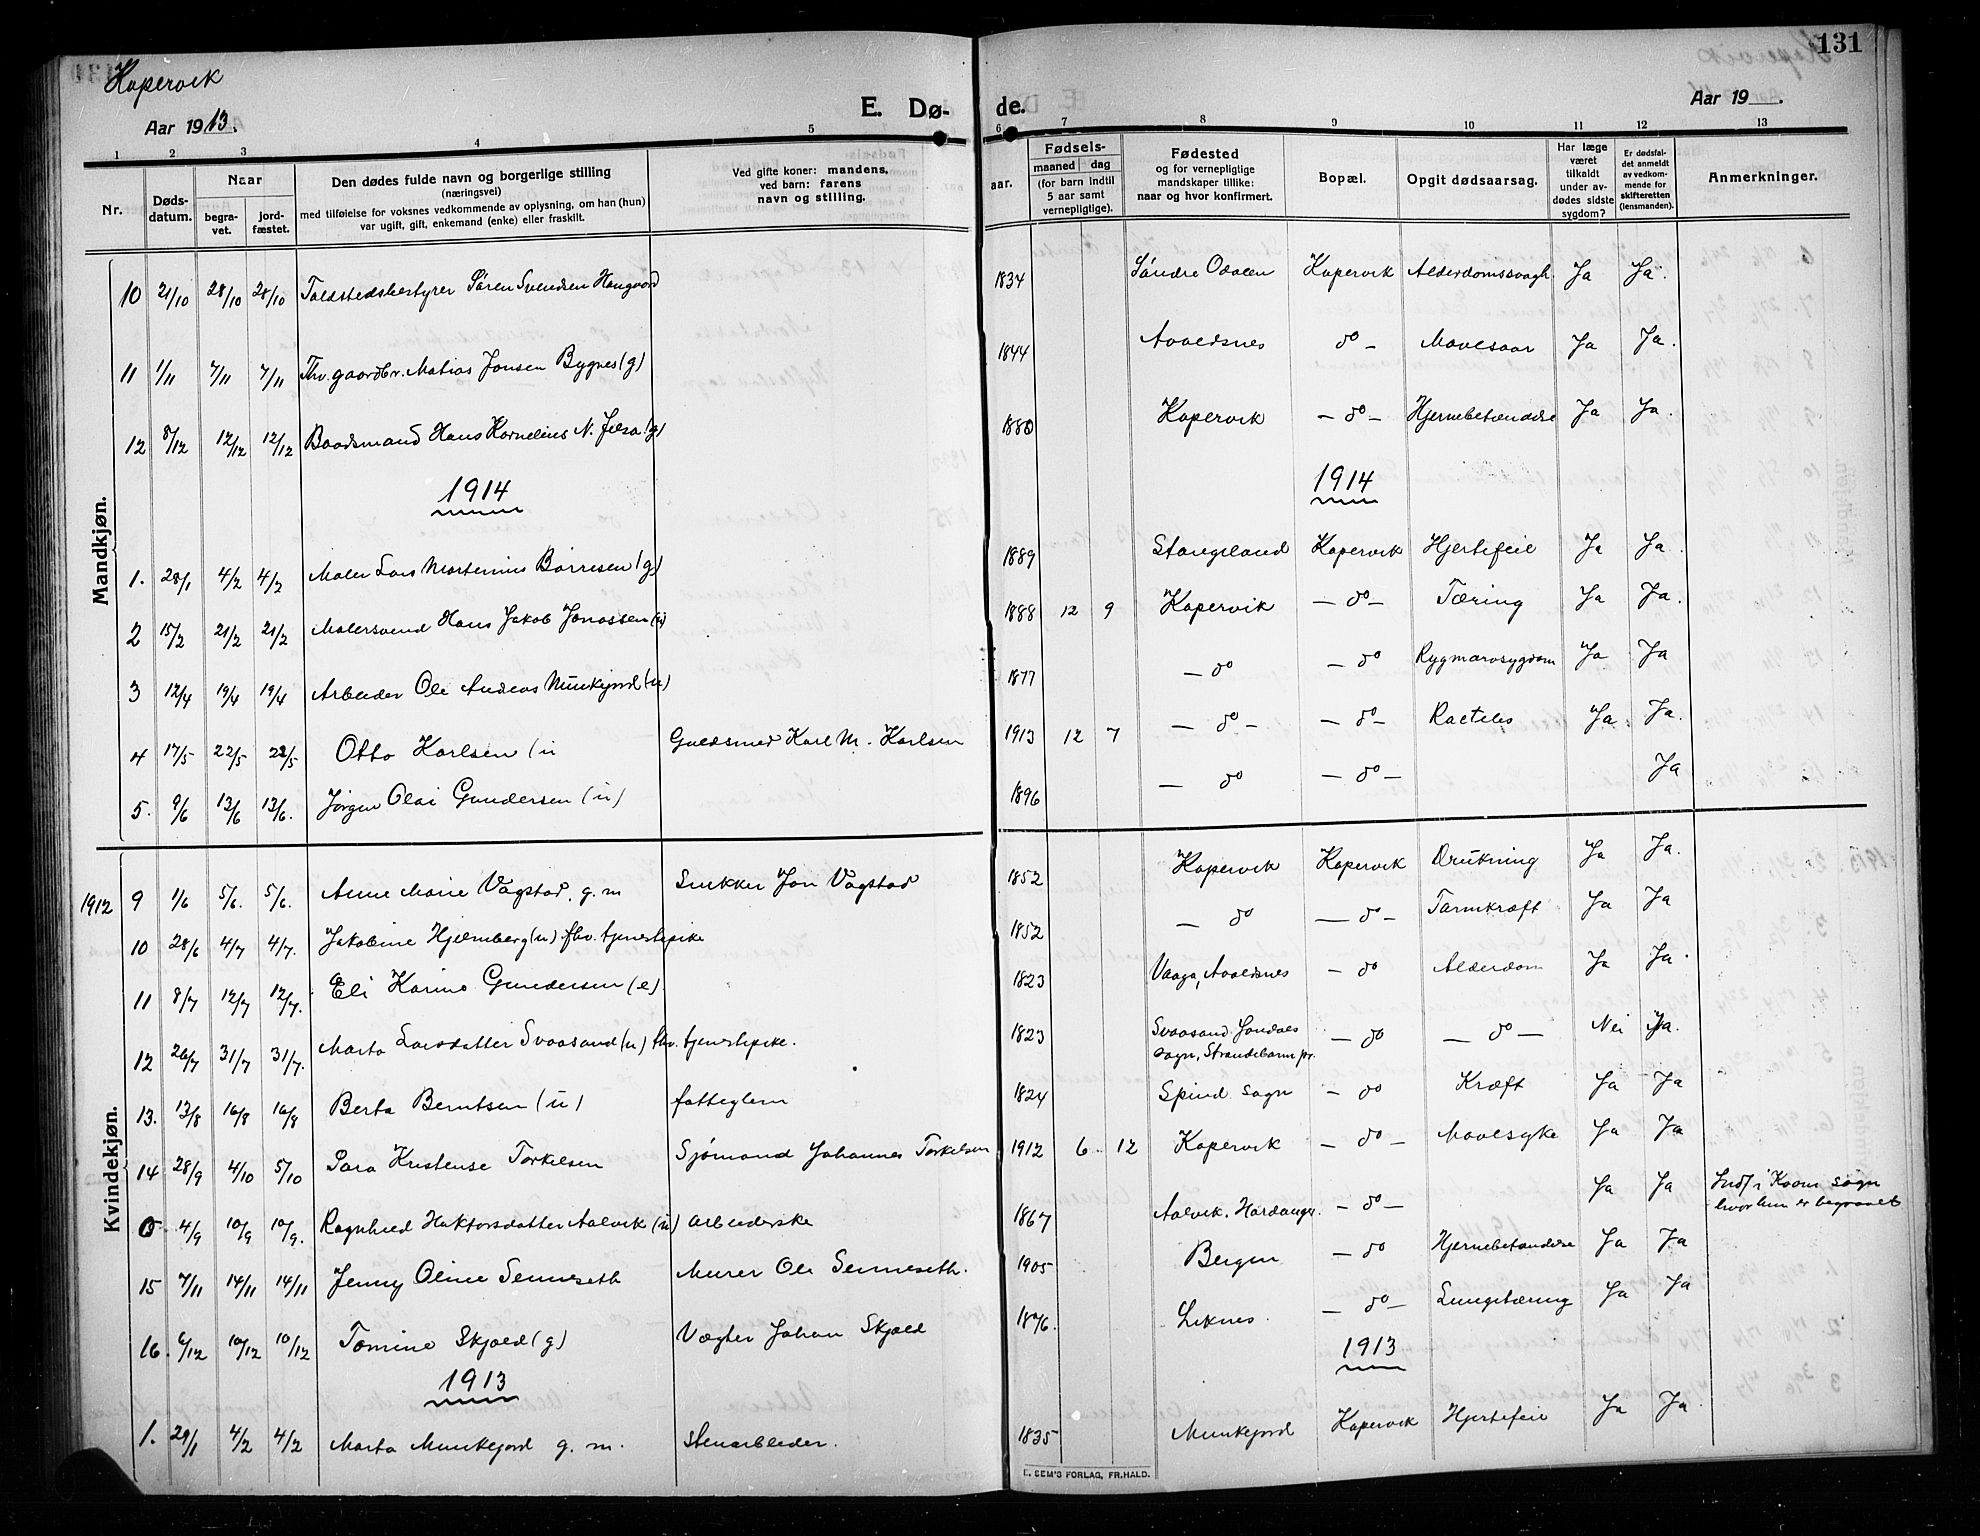 Kopervik
Aar 1913.
E. Dø-
de.
Aar 19 .
131
1 2 3 4 5 6 7 8 9 10 11 12 13
Nr.
Døds-datum.
Naar
begra-vet.
jord-fæstet.
Den dødes fulde navn og borgerlige stilling
(næringsvei)
med tilføielse for voksnes vedkommende av oplysning, om han (hun)
var ugift, gift, enkemand (enke) eller fraskilt.
Ved gifte koner: mandens,
ved barn: farens
navn og stilling.
aar.
Fødsels-
maaned dag
(for barn indtil
5 aar samt
vernepligtige).
Fødested
og for vernepligtige
mandskaper tillike:
naar og hvor konfirmert.
Bopæl.
Opgit dødsaarsag.
Har læge
været
tilkaldt
under av-
dødes sidste
sygdom?
Er dødsfal-
det anmeldt
av vedkom-
mende for
skifteretten
(lensmanden).
Anmerkninger.
Mandkjøn.
10 21/10 28/10 28/10 Toldstedsbestyrer Sören Svendsen 1834 Söndre Odalen Kopervik Alderdomssvagh. Ja Ja.
11 1/11 7/11 7/11 Fhv. gaardbr. Matias Jonsen Bygnes (g) 1844 Avaldsnes do — Mavesaar Ja Ja.
12 8/12 12/12 12/12 Baadsmand Hans Kornelius N. Jelsa (g) 1880 Kopervik — do — Hjernebetændelse Ja Ja.
1914 1914
1. 28/1 4/2 4/2 Maler Lars Martinius Börresen (g) 1889 Stangeland Kopervik Hjertefeil Ja Ja.
2 15/2 21/2 21/2 Malersvend Hans Jakob Jonassen (u) 1888 12 9 Kopervik — do — Tæring Ja Ja.
3 12/4 19/4 19/4 Arbeider Ole Andreas Munkejord (u) 1877 — do — do Rygmarvsygdom Ja Ja
4 17/5 22/5 22/5 Otto Karlsen (u Guldsmed Karl M. Karlsen 1913 12 7 — do — — do — Ja. Ja.
5. 9/6 13/6 13/6. Jörgen Olai Gundersen (u) 1896 — do — do — Ja
Kvindekjøn.
1912 9 1/6 5/6. 5/6. Anne Marie Vagstad, g. m Snekker Jon Vagstad 1852 Kopervik Kopervik Drukning Ja Ja.
10 28/6 4/7 4/7. Jakobine Hjelmberg (u) fhv. tjenestepike 1852 — do — do — Tarmkræft Ja Ja
11 8/7 12/7 12/7. Eli Karine Gundersen (e) 1823 Vaaga, Avaldsnes — do Alderdom Ja Ja.
12 26/7 31/7 31/7. Marta Larsdatter Svaasand (u) fhv. tjenestepike. 1823 Svaasand Jondals
sogn, Strandebarm pr. — do — do — Nei Ja.
13. 13/8 16/8 16/8 Berta Berntsen (u) fatteglem 1824 Spind sogn — do Kræft Ja Ja
14 28/9 4/10 5/10 Sara Kristense Torkelsen Sjömand Johannes Torkelsen 1912 6 12 Kopervik — do — Mavesyke Ja Ja
4/9 10/9 10/9. Ragnhild Aalvik (u) arbeiderske 1867 Aalvik, Hardanger. — do — Ja Ja Indf i Kvam sogn
hvor hun er begravet
15 7/11 14/11 14/11 Jenny Oline Senneseth Murer Ole Senneseth. 1905 Bergen — do Hjernebetændelse Ja Ja
16. 6/12 10/12 10/12 Tomine Skjold (g) Vægter Johan Skjold 1876. Liknes. — do — Lungetæring Ja Ja
1913 1913
1. 29/1 4/2 4/2 Marta Munkejord g. m. Stenarbeider. 1835 Munkejord Kopervik Hjertefeil Ja Ja.
E. SEM'S FORLAG, FR.HALD.